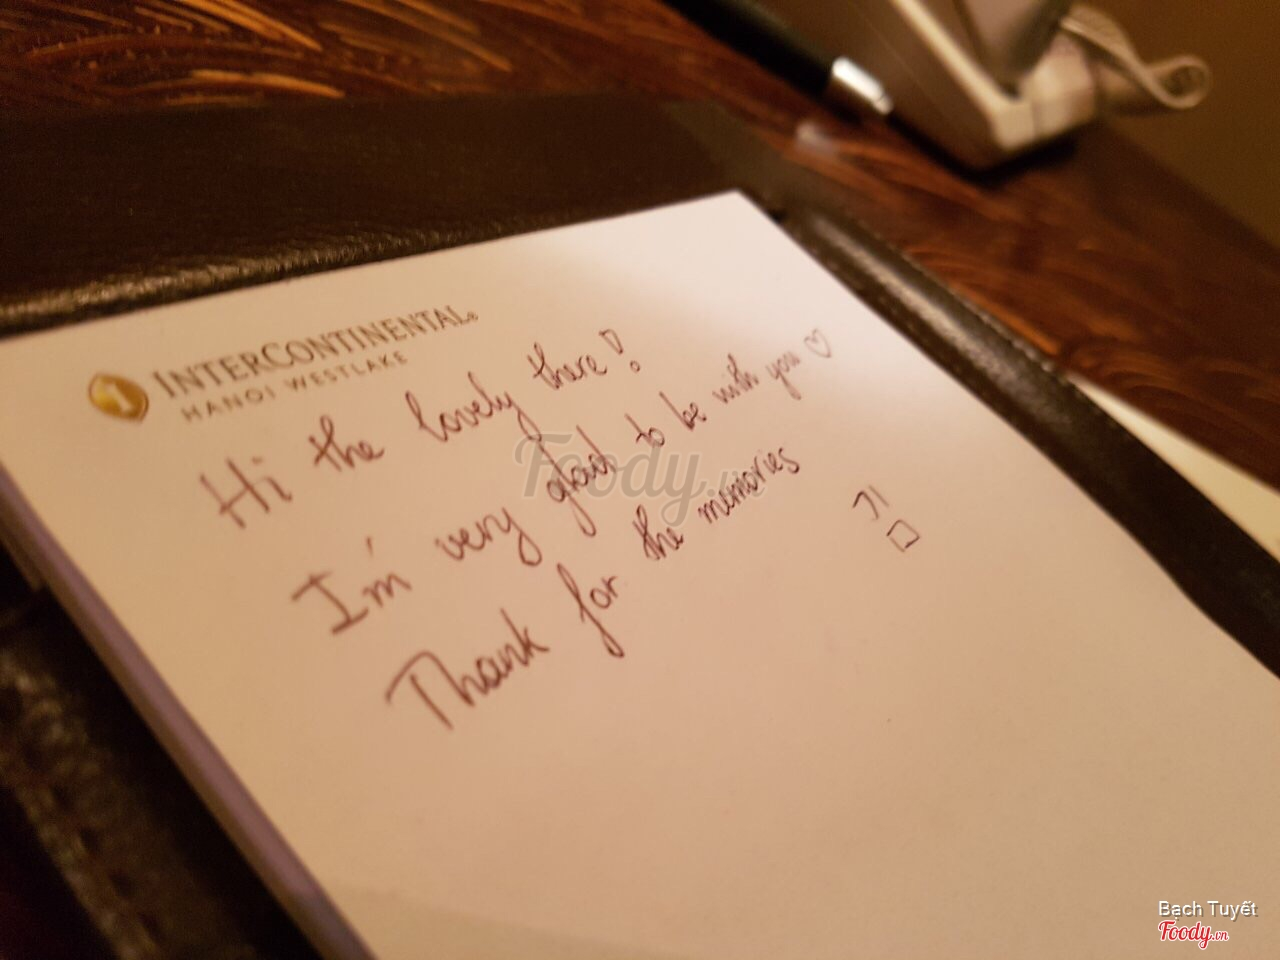 INTERCONTINENTAL®
HANOI WESTLAKE
Hi the lovely there!
I'm very glad to be with you ♡
Thank for the memories
Foody.vn
Bạch Tuyết
Foody.vn